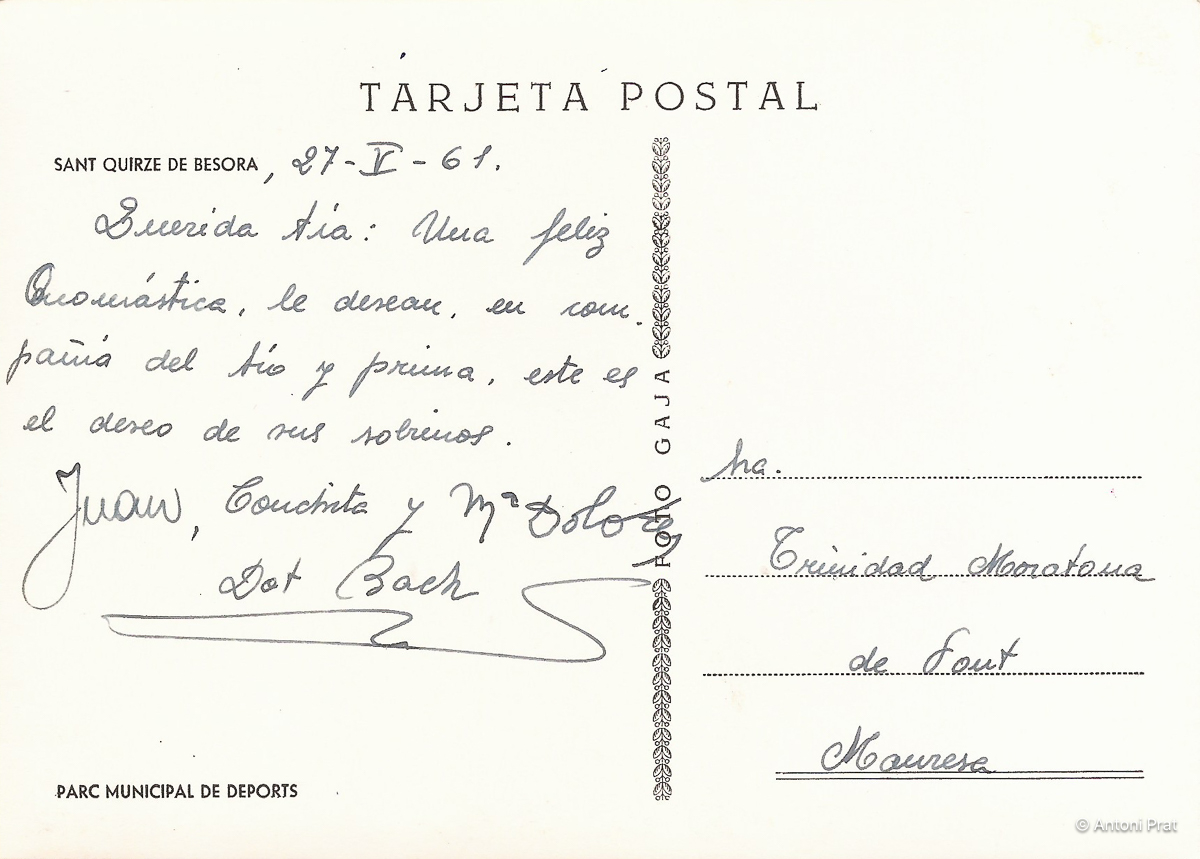 TARJETA POSTAL
SANT QUIRZE DE BESORA, 27-V-61.
Querida tía: Una feliz
Onomástica, le desean, en com-
pañía del tío y prima, este es
el deseo de sus sobrinos.
Juan, Conchita y Mª Dolores
Dot Bach
PARC MUNICIPAL DE DEPORTS
FOTO GAJA
Sra.
Trinidad Moratona
de Font
Manresa
© Antoni Prat